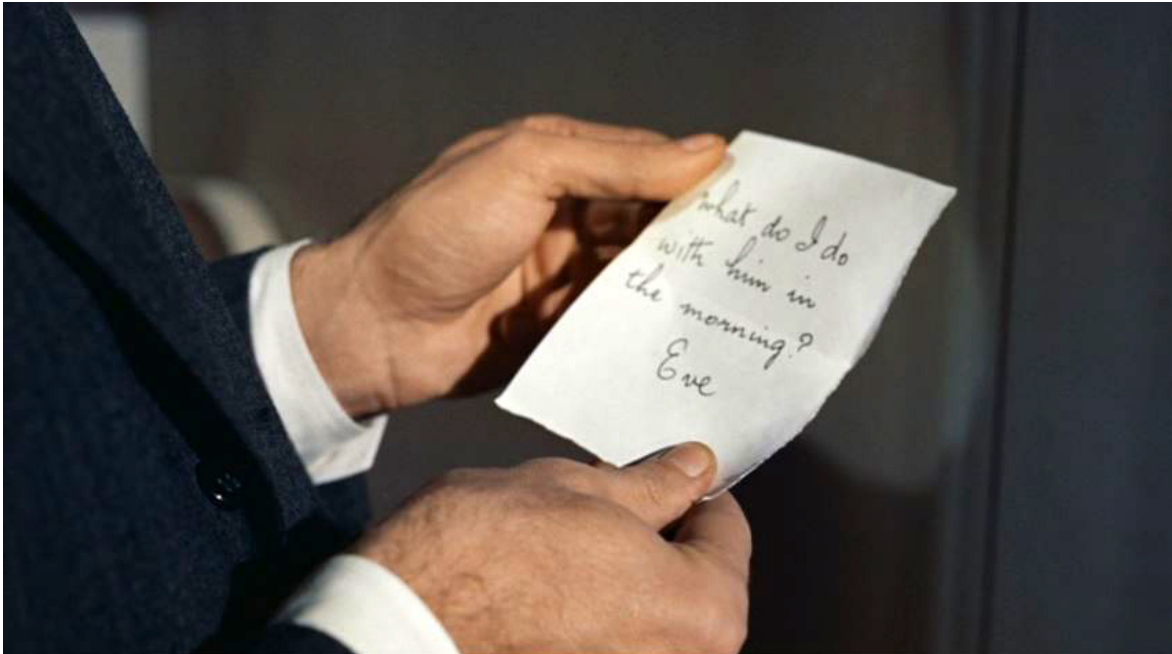 What do I do
with him in
the morning?
Eve